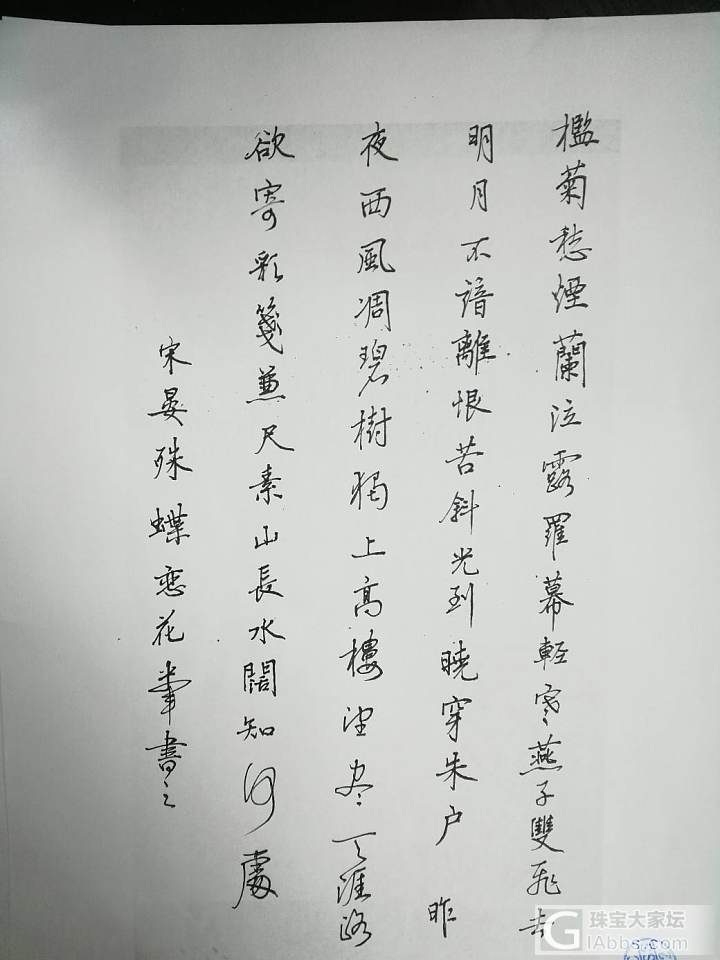 檻菊愁煙蘭泣露羅幕輕寒燕子雙飛去
明月不諳離恨苦斜光到曉穿朱户 昨
夜西風凋碧樹獨上高樓望尽天涯路
欲寄彩箋兼尺素山長水闊知何處
宋晏殊蝶恋花 書之
珠宝大家坛
GIAbbs.com